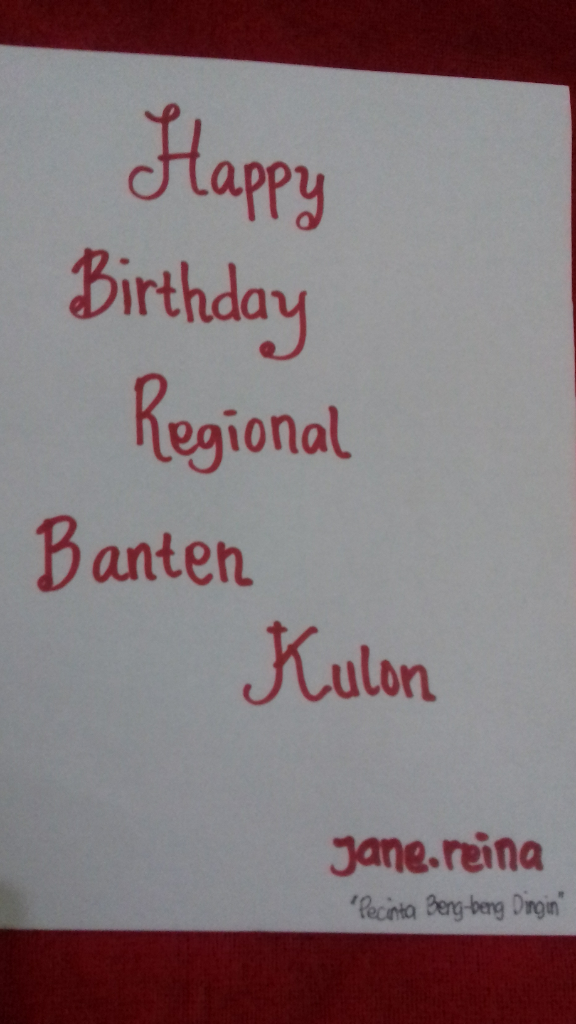 Happy
Birthday
Regional
Banten
Kulon
jane.reina
"Pecinta Beng-beng Dingin"